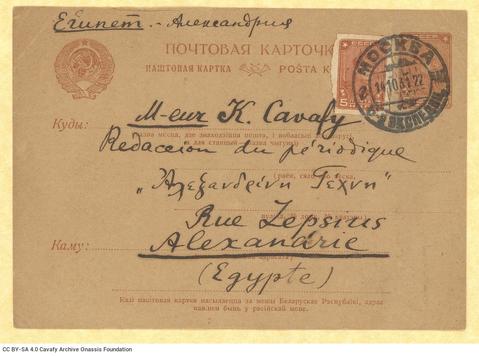 Египет. - Александрия
ПОЧТОВАЯ КАРТОЧКА
ПАШТОВАЯ КАРТКА POŠTA K
МОСКВА
14 10 31 22
5
M-eur K. Cavafy
Куды:
Redaccion du périodique
„Αλεξανδρινή Τέχνη"
Rue Lepsius
Каму:
Alexandrie
(Egypte)
Калі паштовая картка насылаецца за межы Беларускае Рэспублікі, адрас
павінен быць у расійскай мове.
CC BY-SA 4.0 Cavafy Archive Onassis Foundation